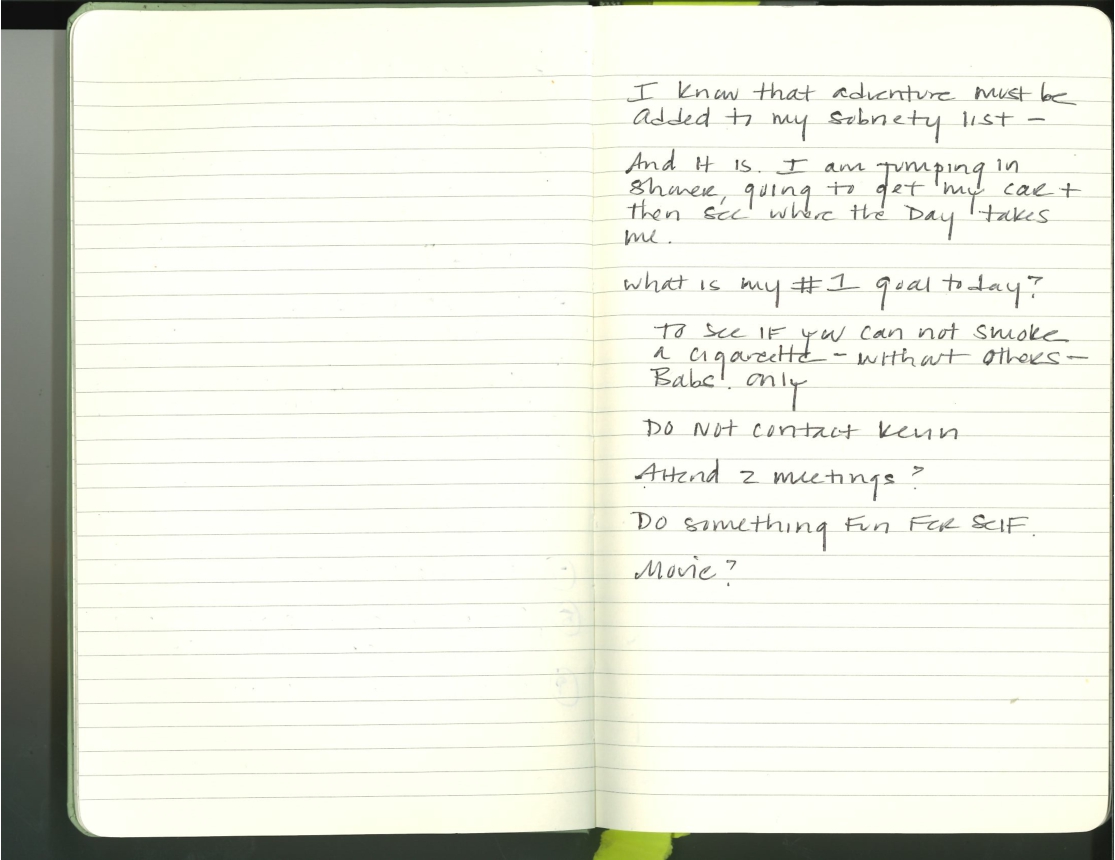 I know that adventure must be
added to my sobriety list -
And it is. I am jumping in
shower, going to get my car +
then see where the Day takes
me.
what is my #1 goal today?
To see IF you can not smoke
a cigarette - without others -
Babs. only
Do Not contact Kevin
Attend 2 meetings?
Do something Fun For SelF.
Movie?